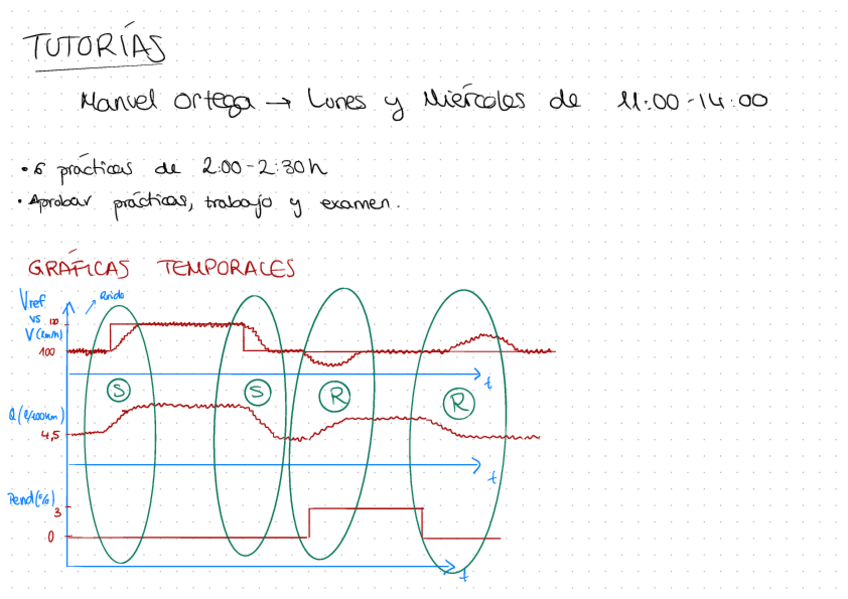 TUTORÍAS
Manuel Ortega → Lunes y Miércoles de 11:00-14:00
• 6 prácticas de 2:00-2:30h
• Aprobar prácticas, trabajo y examen.
GRÁFICAS TEMPORALES
Vref
vs
V(km/h)
Ruido
100
t
S
S
R
R
Q(l/100km)
4,5
t
Pend(%)
3
0
t